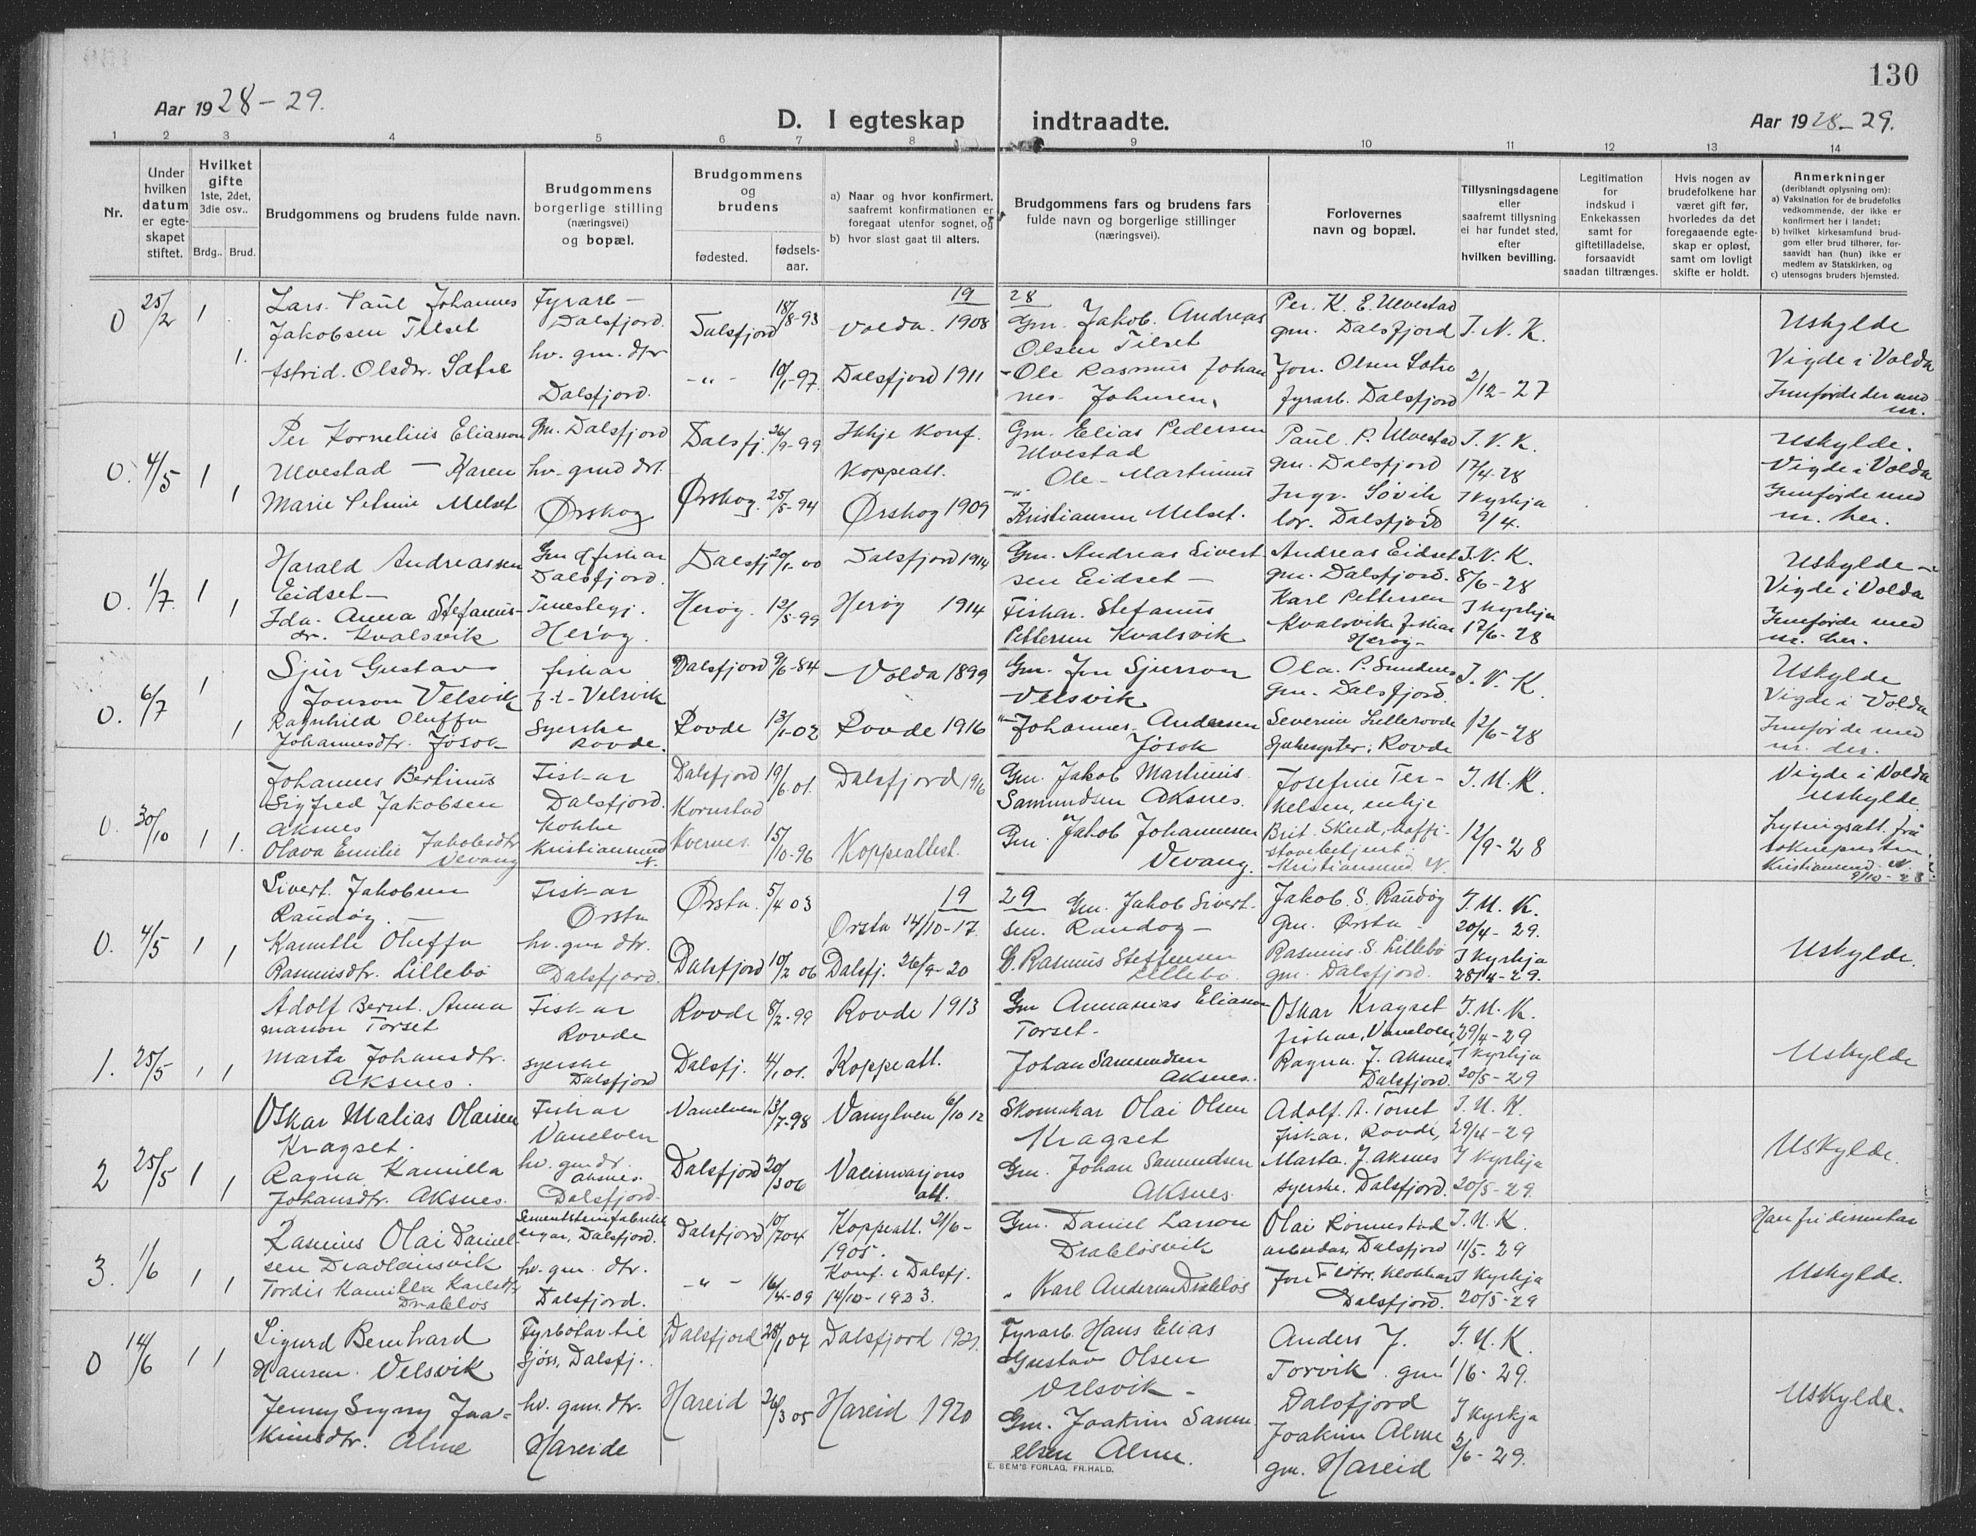 130
Aar 1928-29.
D. I egteskap indtraadte.
Aar 1928-29.
1 2 3 4 5 6 7 8 9 10 11 12 13 14
Nr.
Under
hvilken
datum
er egte-
skapet
stiftet.
Hvilket
gifte
1ste, 2det,
3die osv..
Brdg.. Brud.
Brudgommens og brudens fulde navn.
Brudgommens
borgerlige stilling
(næringsvei)
og bopæl.
Brudgommens
og
brudens
fødested.
fødsels-
aar.
a) Naar og hvor konfirmert,
saafremt konfirmationen er
foregaat utenfor sognet, og
b) hvor slost gaat til alters.
Brudgommens fars og brudens fars
fulde navn og borgerlige stillinger
(næringsvei).
Forlovernes
navn og bopæl.
Tillysningsdagene
eller
saafremt tillysning
ei har fundet sted,
efter
hvilken bevilling.
Legitimation
for
indskud i
Enkekassen
samt for
giftetilladelse,
forsaavidt
saadan tiltrænges.
Hvis nogen av
brudefolkene har
været gift før,
hvorledes da det
foregaaende egte-
skap er opløst,
samt om lovligt
skifte er holdt.
Anmerkninger
(deriblandt oplysning om):
a) Vaksination for de brudefolks
vedkommende, der ikke er
konfirmert her i landet;
b) hvilket kirkesamfund brud-
gom eller brud tilhører, for-
saavidt han (hun) ikke er
medlem av Statskirken, og
c) utensogns bruders hjemsted.
19 28
0 25/2 1 1.
Lars Paul Johannes
Jakobsen Tilset
Astrid Olsdtr. Satre
Fyrarb-
Dalsfjord.
hv. gm. dtr
Dalsfjord.
Dalsfjord 18/8-93
-"- 10/1-97.
Volda. 1908
Dalsfjord 1911
Gm. Jakob Andreas
Olsen Tilset
-Ole Rasmus Johan
nes Johnsen.
Per. K. E. Ulvestad
gm. Dalsfjord
Jon. Olsen Satre
fyrarb. Dalsfjord
I. N. K.
2/12-27
Uskylde
Vigde i Volda
Innførde der med
nr.
0. 4/5 1 1
Per Kornelius Eliasson
Ulvestad - Karen
Marie Petrine Melset
Gm. Dalsfjord
hv. grmd dtr.
Ørskog
Dalsfj. 26/9-99
Ørskog. 25/5-94
Ikkje konf.
Koppeatt.
Ørskog 1909
Gm. Elias Pedersen
Ulvestad
-"- Ole Martinus
Kristiansen Melset.
Paul P. Ulvestad
gm. Dalsfjord
Ingv. Søvik
lør. Dalsfjord
I. V. K.
17/4-28
I kyrkja
9/4.
Uskylde.
Vigde i Volda
Innførde med
nr. her.
0. 1/7 1 1
Harald Andreassen
Eidset-
Ida Anna Stefanus-
dr. Kvalsvik
Gm og fiskar
Dalsfjord.
Tenestegj.
Herøy.
Dalsfj. 20/1-00
Herøy. 12/5-99
Dalsfjord 1914
Herøy 1914
Gm. Andreas Sivert
sen Eidset -
Fiskar. Stefanus
Pettersen Kvalsvik
Andreas Eidset
gm. Dalsfjord.
Karl Pettersen
Kvalsvik fiskar
Herøy-
I. V. K.
8/6-28
I kyrkja
17/6-28
Uskylde -
Vigde i Volda
Innførde med
nr. her.
0. 6/7 1 1
Sjur Gustav
Jonson Velsvik
Ragnhild Oluffa
Johannesdtr. Jøsok
fiskar
f. t. Velsvik
Syerske
Rovde.
Dalsfjord 9/6-84
Rovde 13/1-02
Volda 1899
Rovde 1916
Gm. Jon Sjurson
Velsvik
"-Johannes Andersen
Jøsok
Ola P. Sundnes
Gm. Dalsfjord.
Severine Lillerovde
Sjukesyster, Rovde
I. V. K.
12/6-28
Uskylde
Vigde i Volda
Innførde med
nr. der.
0. 30/10 1 1.
Johannes Bertinus
Sigfred Jakobsen
Aksnes
Olava Emilie Jakobsdtr
Vevang
Fiskar
Dalsfjord.
Kokke
Kristiansund
N.
Dalsfjord 19/6.01.
Kornstad
Kvernes. 15/10-96
Dalsfjord 1916
Koppeattest.
Gm. Jakob Martinus
Samundsen Aksnes.
Gm. Jakob Johannesen
Vevang.
Josefine Ter-
kelsen, enkje
Brit. Skud, kaffi-
stovebetjent
Kristiansund N
I. M. K.
12/9-28
Vigde i Volda
uskylde
Lysingsatt. frå
soknepresten
Kristiansund N.
9/10-28
19 29
0. 4/5 1 1
Sivert Jakobsen
Raudøy. -
Kamilla Oluffa
Rasmusdtr. Lillebø
Fiskar
Ørsta
hv. gm dtr.
Dalsfjord.
Ørsta. 5/4 03
Dalsfjord 10/2 06
Ørsta 14/10-17.
Dalsfj. 26/9-20
Gm. Jakob Sivert.
sen. Raudøy -
G. Rasmus Steffensen
Lillebø.
Jakob S. Raudøy
Gm. Ørsta -
Rasmus S. Lillebø
gm. Dalsfjord.
I. M. K.
20/4-29.
I kyrkja
28/4-29.
Uskylde.
1. 25/5 1 1
Adolf Bernt. Anna
manson Torset
Marta Johansdtr.
Aksnes.
Fiskar
Rovde
syerske
Dalsfjord
Rovde 8/2-99
Dalsfj. 4/1 01.
Rovde 1913
Koppeatt.
Gm Annanias Eliasson
Torset-
Johan Samundsen
Aksnes.
Oskar Kragset
fiskar, Vanelven,
Ragna J. Aksnes
Dalsfjord.
I. M. K.
29/4-29
I kyrkja
20/5-29
Uskylde
2 25/5 1 1
Oskar Malias Olaisen
Kragset.
Ragna Kamilla
Johansdtr. Aksnes.
Fiskar
Vanelven
hv. gm dr.
Aksnes.
Dalsfjord.
Vanelven 13/7-98
Dalsfjord 20/3 06
Vanylven 6/10 12
Vaksinasjons
att.
Skomakar Olai Olsen
Kragset
Gm. Johan Samundsen
Aksnes.
Adolf. A. Torset
fiskar, Rovde,
Marta. J. Aksnes
syerske. Dalsfjord.
I. M. K.
29/4-29
I kyrkja
20/5-29.
Uskylde.
3. 1/6 1 1
Rasmus Olai Daniel-
sen Drabløsvik
Tordis Kamilla Karlsdtr
Drabløs
Sementsteinfabrik
eigar, Dalsfjord.
hv. gm. dtr.
Dalsfjord.
Dalsfjord 10/7 04
-"- 16/4-09
Koppeatt. 21/6-
1905.
Konf. i Dalsfj.
14/10-1923.
Gm. Daniel Larson
Drabløsvik
" Karl Andersen Drabløs
Olai Rønnestad
arbeidar, Dalsfjord
Jon Klokkar
Dalsfjord.
I. M. K.
11/5-29
I kyrkja
20/5-29
Han fri dissenter
Uskylde.
0 14/6 1 1
Sigurd Bernhard
Hansen. Velsvik
Jenny Signy Joa-
kimsdtr. Alme
Fyrbøtar til
sjøss, Dalsfj.
hv. gm. dtr.
Hareide
Dalsfjord 28/1 07
Hareid 26/3 05
Dalsfjord 1921
Hareid 1920
Fyrarb. Hans Elias
Gustav Olsen
Velsvik -
Gm. Joakim Samu
elsen Alme.
Anders J.
Torvik gm
Dalsfjord
Joakim Alme
gm. Hareid
I. M. K.
1/6-29.
I kyrkja
2/6-29.
Uskylde.
E. SEM'S FORLAG, FR.HALD.